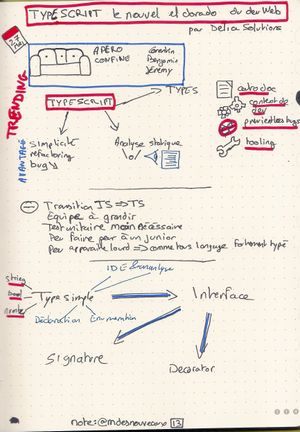 TYPESCRIPT le nouvel el dorado du dev Web
par Delia Solutions
27 Mai
APERO CONFINE
Corentin
Benjamin
Jérémy
TRENDING
TYPESCRIPT
TYPES
AVANTAGE
Simplicité
refactoring
bug
Analyse statique
auto doc
context de dev
prévient les bugs
tooling
Transition JS => TS
Equipe à grandir
Test unitaire moins nécessaire
Peu faire peur à un junior
Peu apparaître lourd => comme tous langage fortement typé
IDE
Sémantique
string
bool
number
Type simple
Déclaration
Enumération
Interface
Signature
Decorator
note: @mdesnouveaux 13